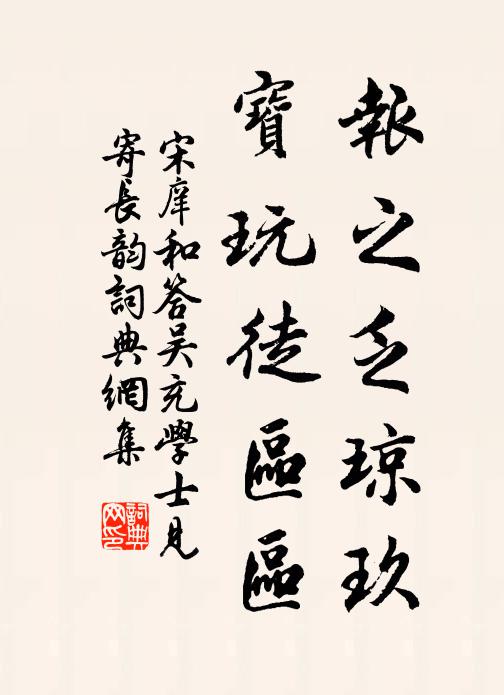 報之乏琼玖
寶玩徒區區
宋庠和答吴充學士見
寄長韵詞典網集
詞典
网印